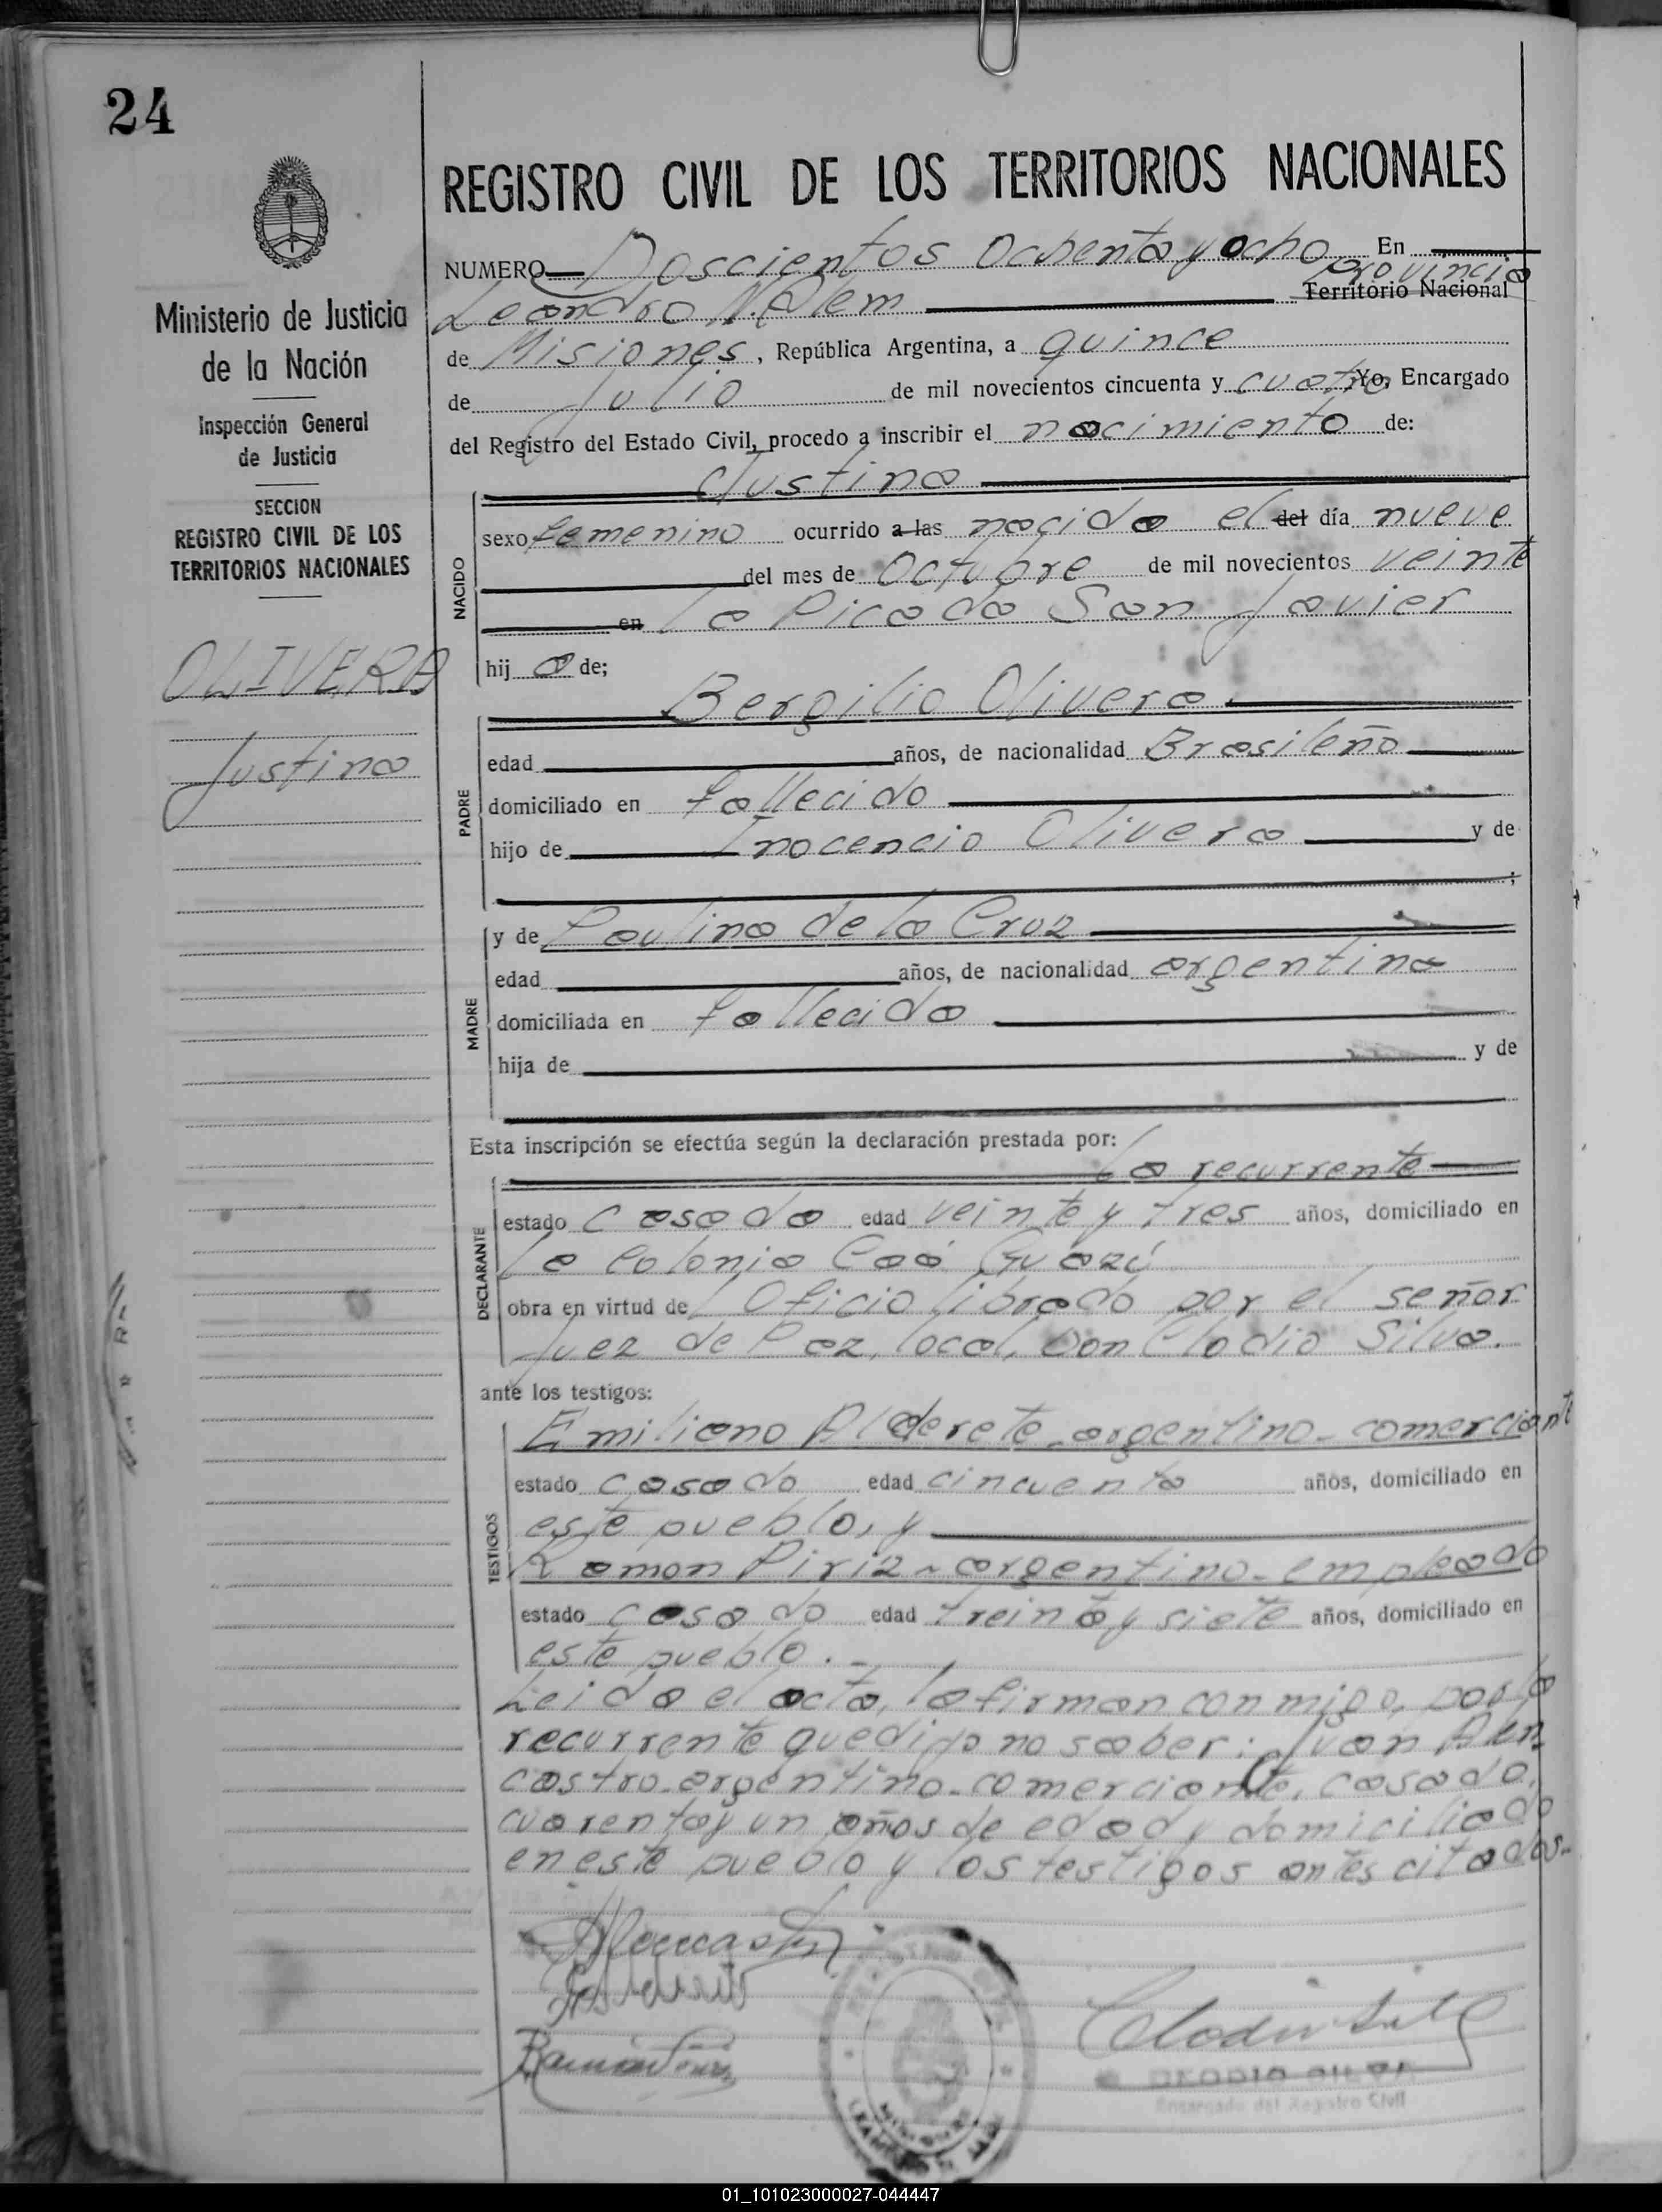 24
REGISTRO CIVIL DE LOS TERRITORIOS NACIONALES
NUMERO Doscientos Ochenta y ocho En
provincia
Leandro N. Alem Territorio Nacional
de Misiones, República Argentina, a quince
de Julio de mil novecientos cincuenta y cuatro Yo, Encargado
del Registro del Estado Civil, procedo a inscribir el nacimiento de:
Ministerio de Justicia
de la Nación
Inspección General
de Justicia
SECCION
REGISTRO CIVIL DE LOS
TERRITORIOS NACIONALES
OLIVERA
Justina
NACIDO
Justina
sexo femenino ocurrido a las nacida el del día nueve
del mes de Octubre de mil novecientos veinte
en la Picada San Javier
hij a de;
PADRE
Bergilio Olivera
edad años, de nacionalidad Brasileño
domiciliado en fallecido
hijo de Inocencio Olivera y de
;
MADRE
y de Paulina de la Cruz
edad años, de nacionalidad argentina
domiciliada en fallecida
hija de y de
Esta inscripción se efectúa según la declaración prestada por:
la recurrente
DECLARANTE
estado casada edad veinte y tres años, domiciliado en
la Colonia Caá Guazú
obra en virtud del Oficio librado por el señor
Juez de Paz, local, Don Clodio Silva.
ante los testigos:
TESTIGOS
Emiliano Alderete - argentino - comerciante
estado casado edad cincuenta años, domiciliado en
este pueblo, y
Ramon Piriz - argentino - empleado
estado casado edad treinta y siete años, domiciliado en
este pueblo. -
Leida el acta, la firman con migo, por la
recurrente que dijo no saber: Juan Alen
castro - argentino - comerciante, casado,
cuarenta y un años de edad y domiciliado
en este pueblo y los testigos antes citados. -
Clodio Silva
CLODIO SILVA
Encargado del Registro Civil
01_101023000027-044447